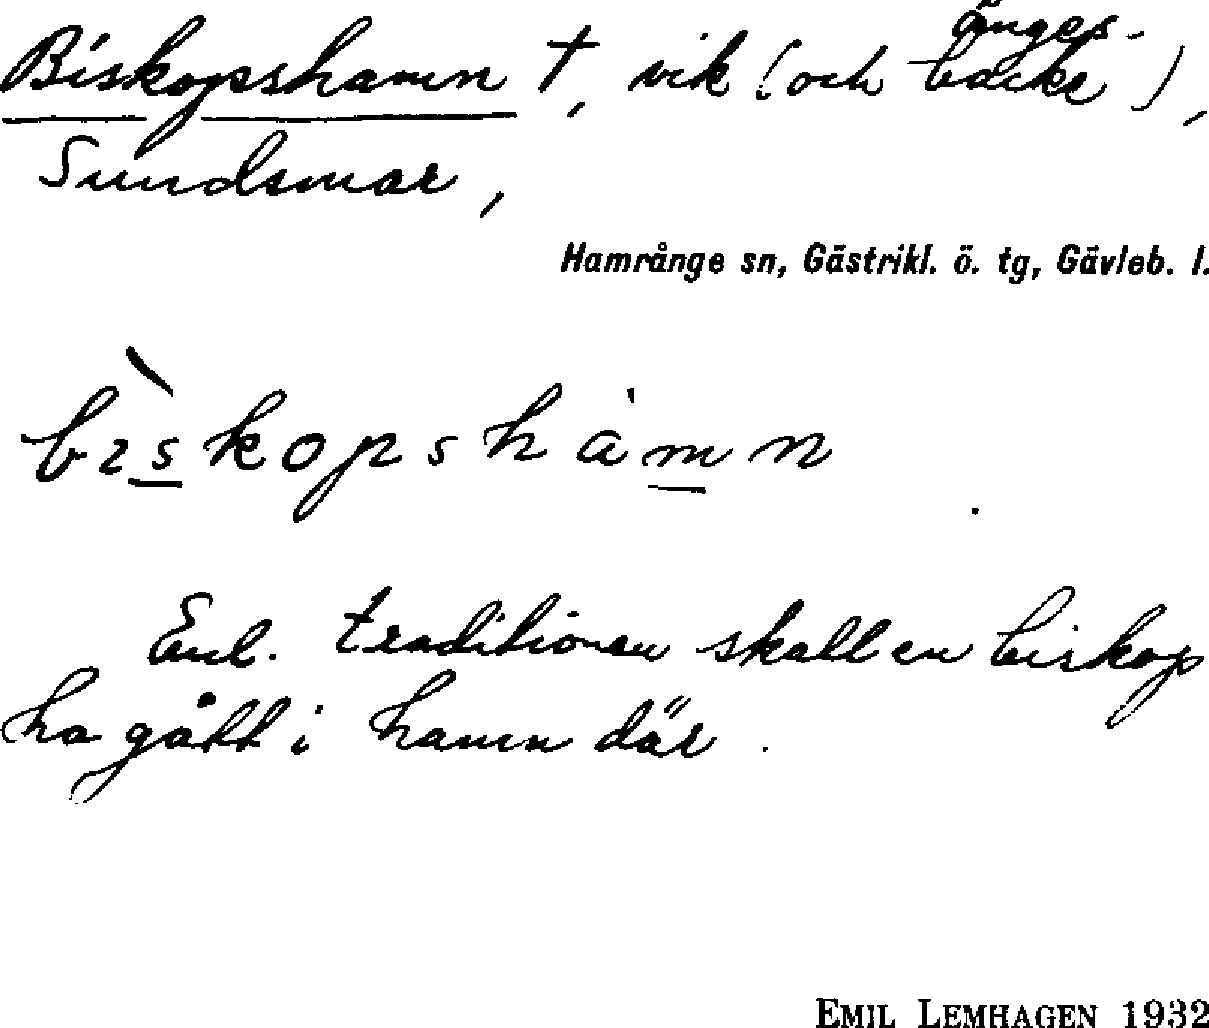 Biskopshamn †, vik (och änges-
backe),
Sundsmar,
Hamrånge sn, Gästrikl. ö. tg, Gävleb. l.
bɪ̀skopshàmn.
Enl. traditionen skall en biskop
ha gått i hamn där.
EMIL LEMHAGEN 1932